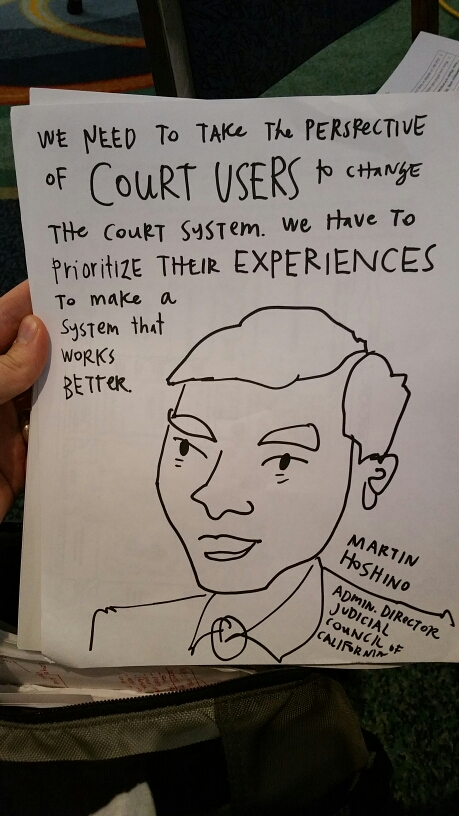 WE NEED TO TAKE The PERSPECTIVE
OF COURT USERS to CHANGE
THE COURT SYSTEM. WE HAVE TO
PrioritIZE THEIR EXPERIENCES
TO make a
System that
WORKS
BETTER.
MARTIN
HOSHINO
ADMIN. DIRECTOR
JUDICIAL
COUNCIL OF
CALIFORNIA